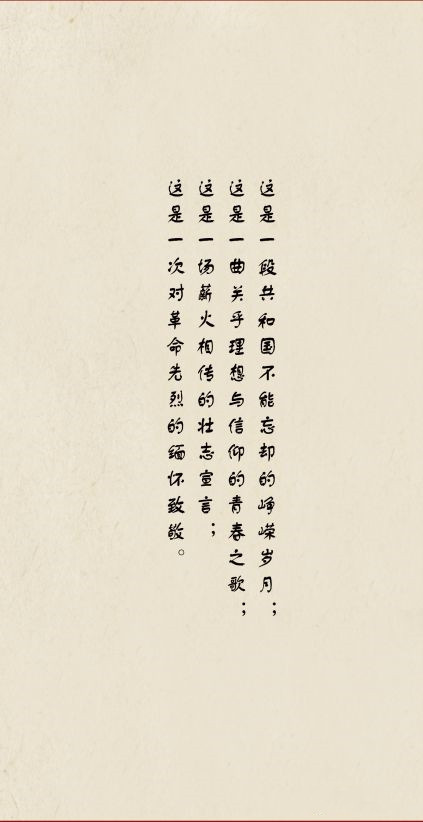 这是一段共和国不能忘却的峥嵘岁月；
这是一曲关乎理想与信仰的青春之歌；
这是一场薪火相传的壮志宣言；
这是一次对革命先烈的缅怀致敬。